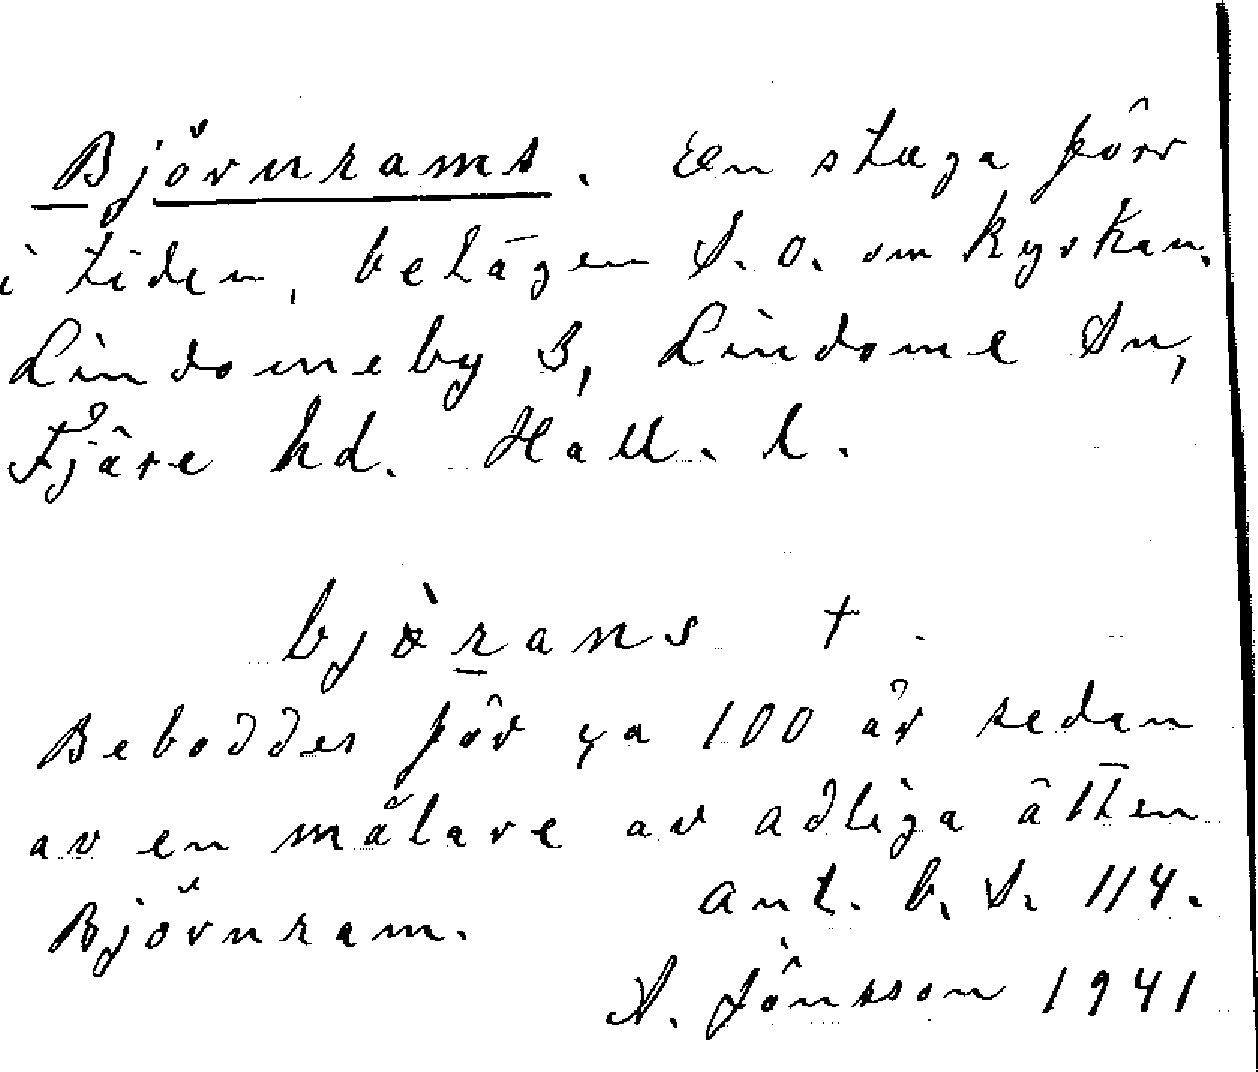 Björnrams. En stuga förr
i tiden, belägen S. O. om kyrkan.
Lindomeby 3, Lindome Sn,
Fjäre hd. Hall. l.
bjòrans †
Beboddes för ca 100 år sedan
av en målare av adliga ätten
Björnram. ant. b. S. 114.
A. Jönsson 1941